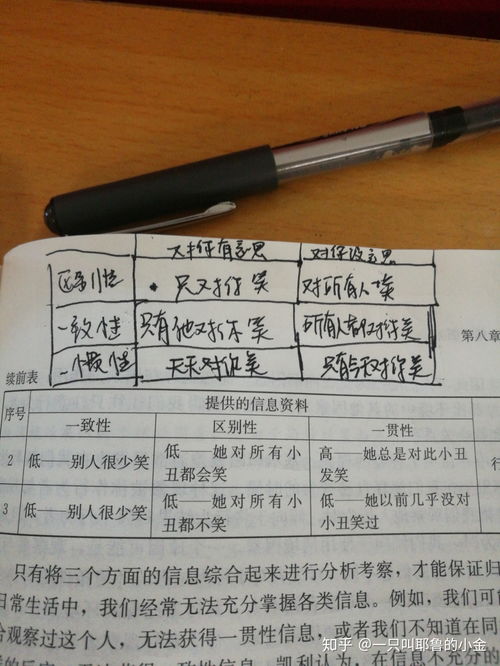 对你有意思 对你没意思
区别性 只对你笑 对所有人笑
一致性 只有他对你笑 所有人都对你笑
一惯性 天天对你笑 只有今天对你笑
第八章
续前表
序号 提供的信息资料
一致性 区别性 一贯性
2 低——别人很少笑 低——她对所有小丑都会笑 高——她总是对此小丑发笑
3 低——别人很少笑 低——她对所有小丑都不笑 低——她以前几乎没对小丑笑过
只有将三个方面的信息综合起来进行分析考察，才能保证归
日常生活中，我们经常无法充分掌握各类信息。例如，我们可能
观察过这个人，无法获得一贯性信息，或者我们不知道在同
知乎 @一只叫耶鲁的小金